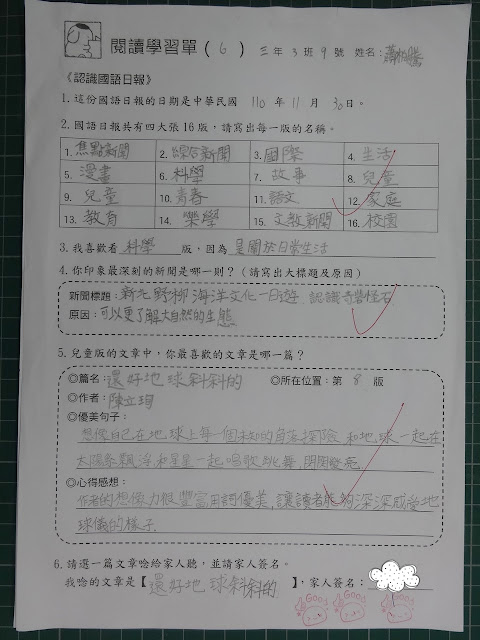 閱讀學習單（6） 三年3班9號 姓名：
《認識國語日報》
1. 這份國語日報的日期是中華民國 110 年 11 月 30 日。
2. 國語日報共有四大張16版，請寫出每一版的名稱。
1. 焦點新聞 2. 綜合新聞 3. 國際 4. 生活
5. 漫畫 6. 科學 7. 故事 8. 兒童
9. 兒童 10. 青春 11. 語文 12. 家庭
13. 教育 14. 樂學 15. 文教新聞 16. 校園
3. 我喜歡看 科學 版，因為 是關於日常生活
4. 你印象最深刻的新聞是哪一則？（請寫出大標題及原因）
新聞標題：新北野柳海洋文化一日遊 認識奇岩怪石
原因：可以更了解大自然的生態
5. 兒童版的文章中，你最喜歡的文章是哪一篇？
◎篇名：還好地球斜斜的 ◎所在位置：第 8 版
◎作者：陳立珣
◎優美句子：
想像自己在地球上每一個未知的角落探險 和地球一起在
太陽系飄浮和星星一起唱歌跳舞、閃閃發亮
◎心得感想：
作者的想像力很豐富用詞優美，讓讀者能夠深深感受地
球儀的樣子.
6. 請選一篇文章唸給家人聽，並請家人簽名。
我唸的文章是【還好地球斜斜的】，家人簽名：
Good Good